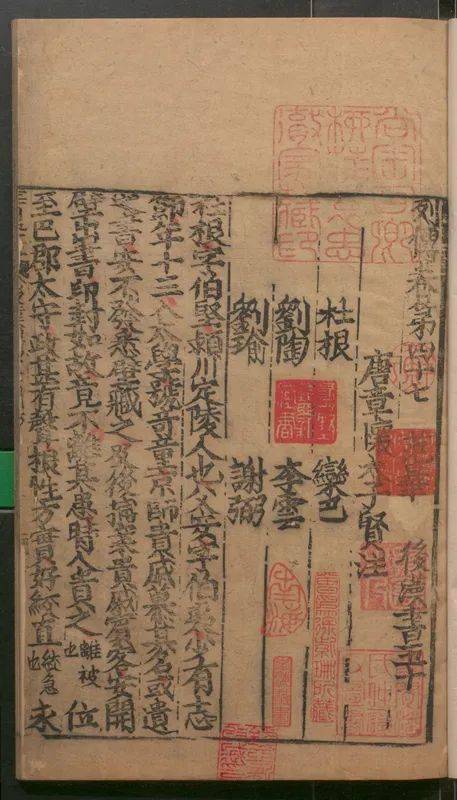 列傳卷第四十七 范曄 後漢書五十
唐章懷太子賢注
杜根 欒巴
劉陶 李雲
劉瑜 謝弼
杜根字伯堅潁川定陵人也父安字伯夷少有志
節年十三入太學號奇童京師貴戚慕其名或遺
之書安不發悉壁藏之及後捕案貴戚賓客安開
壁出書印封如故竟不離其患時人貴之離被也 位
至巴郡太守政甚有聲根性方實好絞直絞急也 永